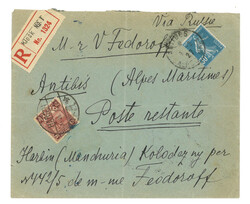 Via Russe
R
No. 1324
M-r V Fedoroff
Antibes (Alpes Maritimes)
Poste restante
Harbin (Manchuria) Kolodezny per
N 442/5 de m-me Feodoroff